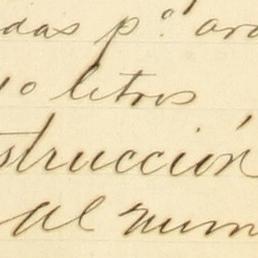 das p.º ara
10 letros
strucción
al num